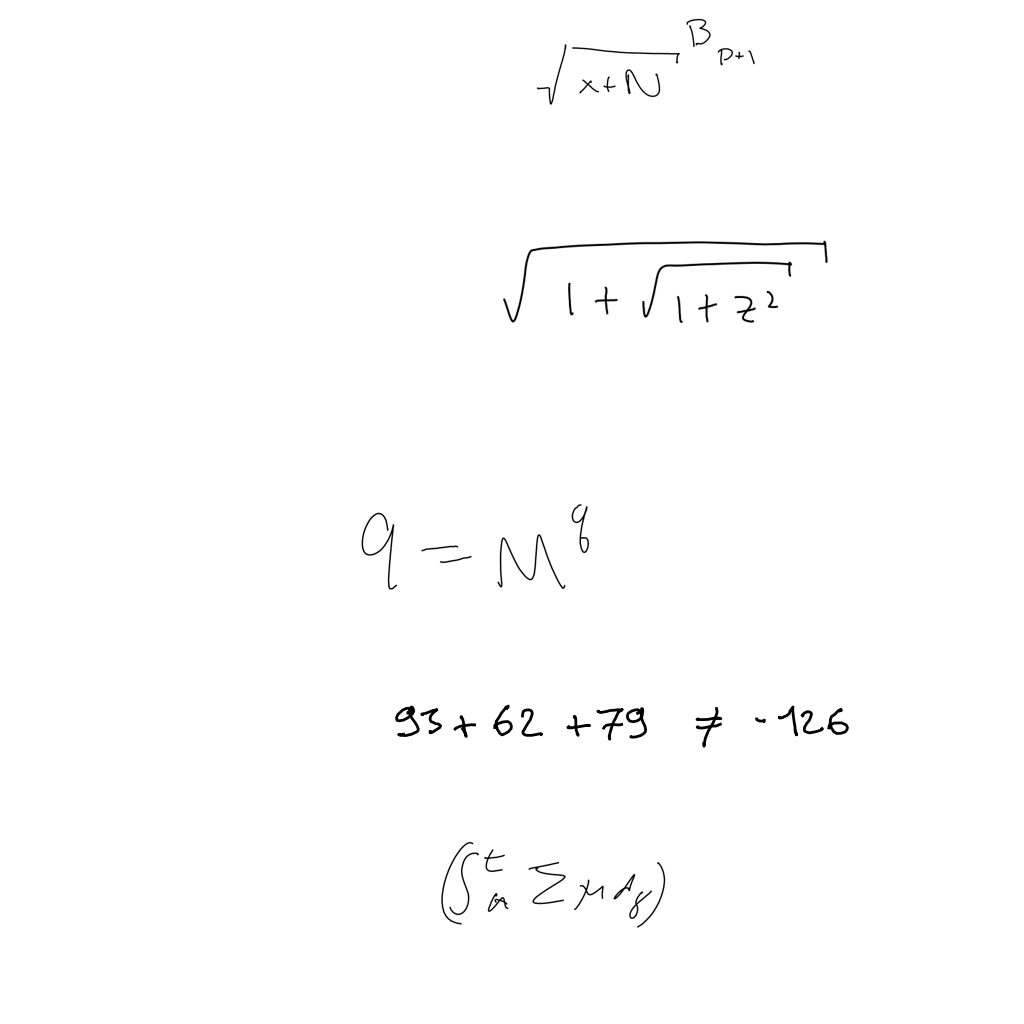 \sqrt{x+N}^{B_{p+1}}
\sqrt{1+\sqrt{1+z^2}}
q = M^8
93 + 62 + 79 ≠ -126
(\int_a^t \sum \mu \Delta_8)